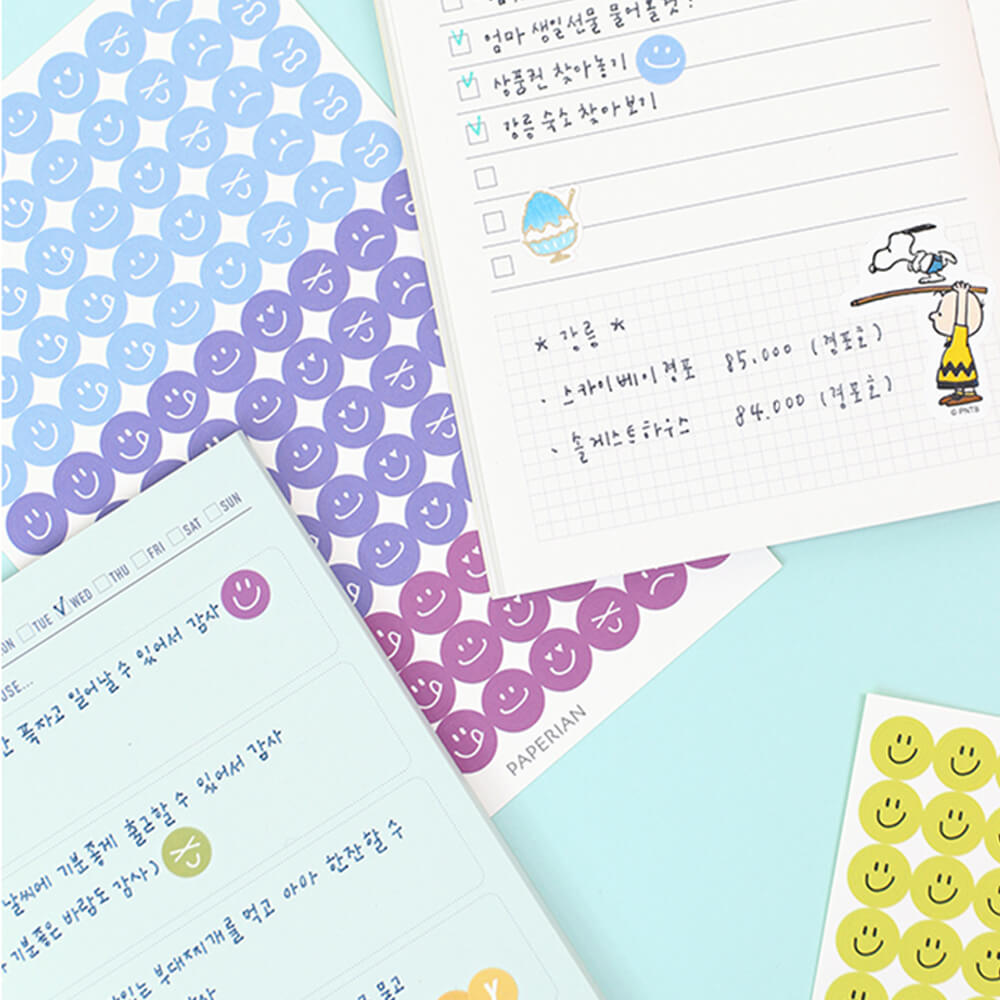 엄마 생일선물 물어볼것!
상품권 찾아놓기
강릉 숙소 찾아보기
* 강릉 *
· 스카이베이 경포 85.000 (경포호)
· 솔게스트하우스 84.000 (경포호)
© PNTS
PAPERIAN
TUE WED THU FRI SAT SUN
푹자고 일어날 수 있어서 감사
날씨에 기분좋게 출근할 수 있어서 감사
기분좋은 바람도 감사)
부대찌개를 먹고 아아 한잔할 수